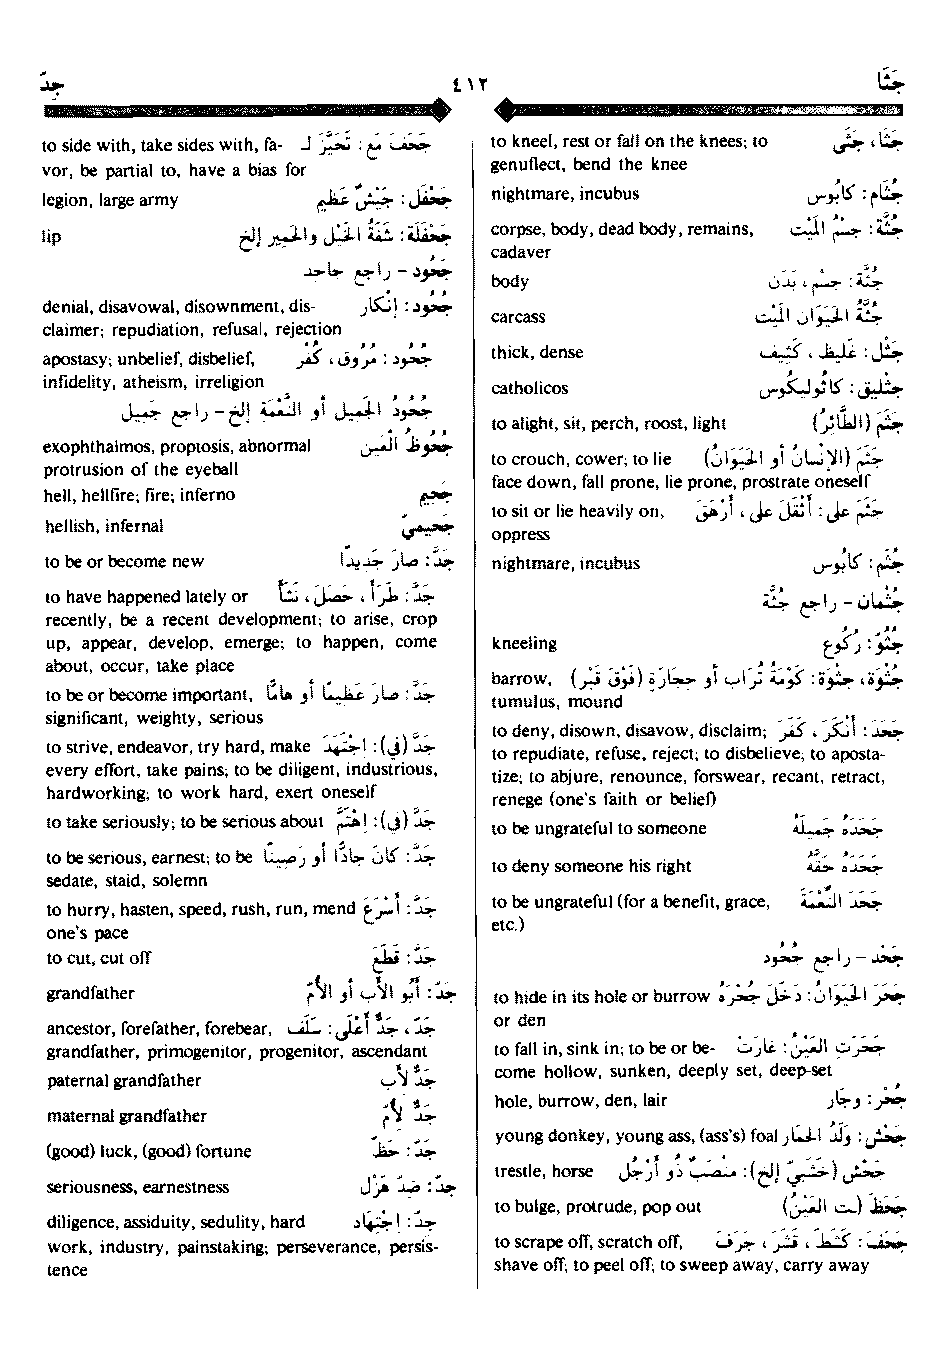 جَثَا
٤١٢
جدّ
جَثَا، جَثَى to kneel, rest or fall on the knees; to
genuflect, bend the knee
جُثَام: كابُوس nightmare, incubus
جُثَّة: جِسْمُ المَيْت corpse, body, dead body, remains,
cadaver
جُثَّة: جِسْم، بَدَن body
جُثَّةُ الحَيَوَانِ المَيْت carcass
جَثْل: غَلِيظ، كَثِيف thick, dense
جثليق: كاثُوليكُوس catholicos
جَثَمَ (الطَّائِرُ) to alight, sit, perch, roost, light
جَثَمَ (الإنْسانُ أو الحَيَوانُ) to crouch, cower; to lie
face down, fall prone, lie prone, prostrate oneself
جَثَمَ على: أَثْقَلَ على، أَرْهَقَ to sit or lie heavily on,
oppress
جُثَم: كابُوس nightmare, incubus
جُثْمان - راجع جُثَّة
جُثُوّ: رُكُوع kneeling
جُثْوَة، جِثْوَة: كَوْمَةُ تُرابٍ أو حِجَارَةٍ (فَوْقَ قَبْر) barrow,
tumulus, mound
جَحَدَ: أَنْكَرَ، كَفَرَ to deny, disown, disavow, disclaim;
to repudiate, refuse, reject; to disbelieve; to aposta-
tize; to abjure, renounce, forswear, recant, retract,
renege (one's faith or belief)
جَحَدَهُ جَمِيلَهُ to be ungrateful to someone
جَحَدَهُ حَقَّهُ to deny someone his right
جَحَدَ النِّعْمَةَ to be ungrateful (for a benefit, grace,
etc.)
جَحْد - راجع جُحُود
جَحَرَ الحَيَوانُ: دَخَلَ جُحْرَهُ to hide in its hole or burrow
or den
جَحَرَتِ العَيْنُ: غارَتْ to fall in, sink in; to be or be-
come hollow, sunken, deeply set, deep-set
جُحْر: وِجَار hole, burrow, den, lair
جَحْش: وَلَدُ الحِمَار young donkey, young ass, (ass's) foal
جَحْش (خَشَبِيّ إلخ): مِنْصَبٌ ذُو أَرْجُل trestle, horse
جَحَظَ (ـت العَيْنُ) to bulge, protrude, pop out
جَحَفَ: كَشَطَ، قَشَرَ، جَرَفَ to scrape off, scratch off,
shave off; to peel off; to sweep away, carry away
جَحَفَ مَعَ: تَحَيَّزَ لـ to side with, take sides with, fa-
vor, be partial to, have a bias for
جَحْفَل: جَيْشٌ عَظِيم legion, large army
جَحْفَلَة: شَفَةُ الخَيْلِ والحَمِيرِ إلخ lip
جَحُود - راجع جاحد
جُحُود: إنْكار denial, disavowal, disownment, dis-
claimer; repudiation, refusal, rejection
جُحُود: مُرُوق، كُفْر apostasy; unbelief, disbelief,
infidelity, atheism, irreligion
جُحُودُ الجَمِيلِ أو النِّعْمَةِ إلخ - راجع جَمِيل
جُحُوظُ العَيْن exophthalmos, proptosis, abnormal
protrusion of the eyeball
جَحِيم hell, hellfire; fire; inferno
جَحِيمِيّ hellish, infernal
جَدَّ: صارَ جَدِيدًا to be or become new
جَدَّ: طَرَأَ، حَصَلَ، نَشَأَ to have happened lately or
recently, be a recent development; to arise, crop
up, appear, develop, emerge; to happen, come
about, occur, take place
جَدَّ: صارَ عَظِيمًا أو هامًّا to be or become important,
significant, weighty, serious
جَدَّ (في): اِجْتَهَدَ to strive, endeavor, try hard, make
every effort, take pains; to be diligent, industrious,
hardworking; to work hard, exert oneself
جَدَّ (في): اِهْتَمَّ to take seriously; to be serious about
جَدَّ: كانَ جادًّا أو رَصِينًا to be serious, earnest; to be
sedate, staid, solemn
جَدَّ: أَسْرَعَ to hurry, hasten, speed, rush, run, mend
one's pace
جَدَّ: قَطَعَ to cut, cut off
جَدّ: أَبُو الأَبِ أو الأُمّ grandfather
جَدّ، جَدٌّ أَعْلَى: سَلَف ancestor, forefather, forebear,
grandfather, primogenitor, progenitor, ascendant
جَدٌّ لأَب paternal grandfather
جَدٌّ لأُمّ maternal grandfather
جَدّ: حَظّ (good) luck, (good) fortune
جِدّ: ضِدّ هَزْل seriousness, earnestness
جِدّ: اِجْتِهاد diligence, assiduity, sedulity, hard
work, industry, painstaking; perseverance, persis-
tence